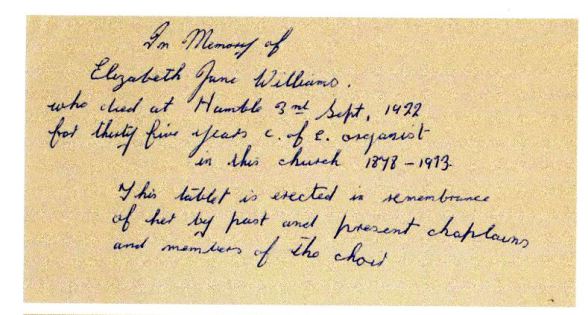 In Memory of
Elizabeth Jane Williams.
who died at Hamble 3rd Sept, 1922
for thirty five years C. of E. organist
in this church 1878 - 1913
This tablet is erected in remembrance
of her by past and present chaplains
and members of the choir